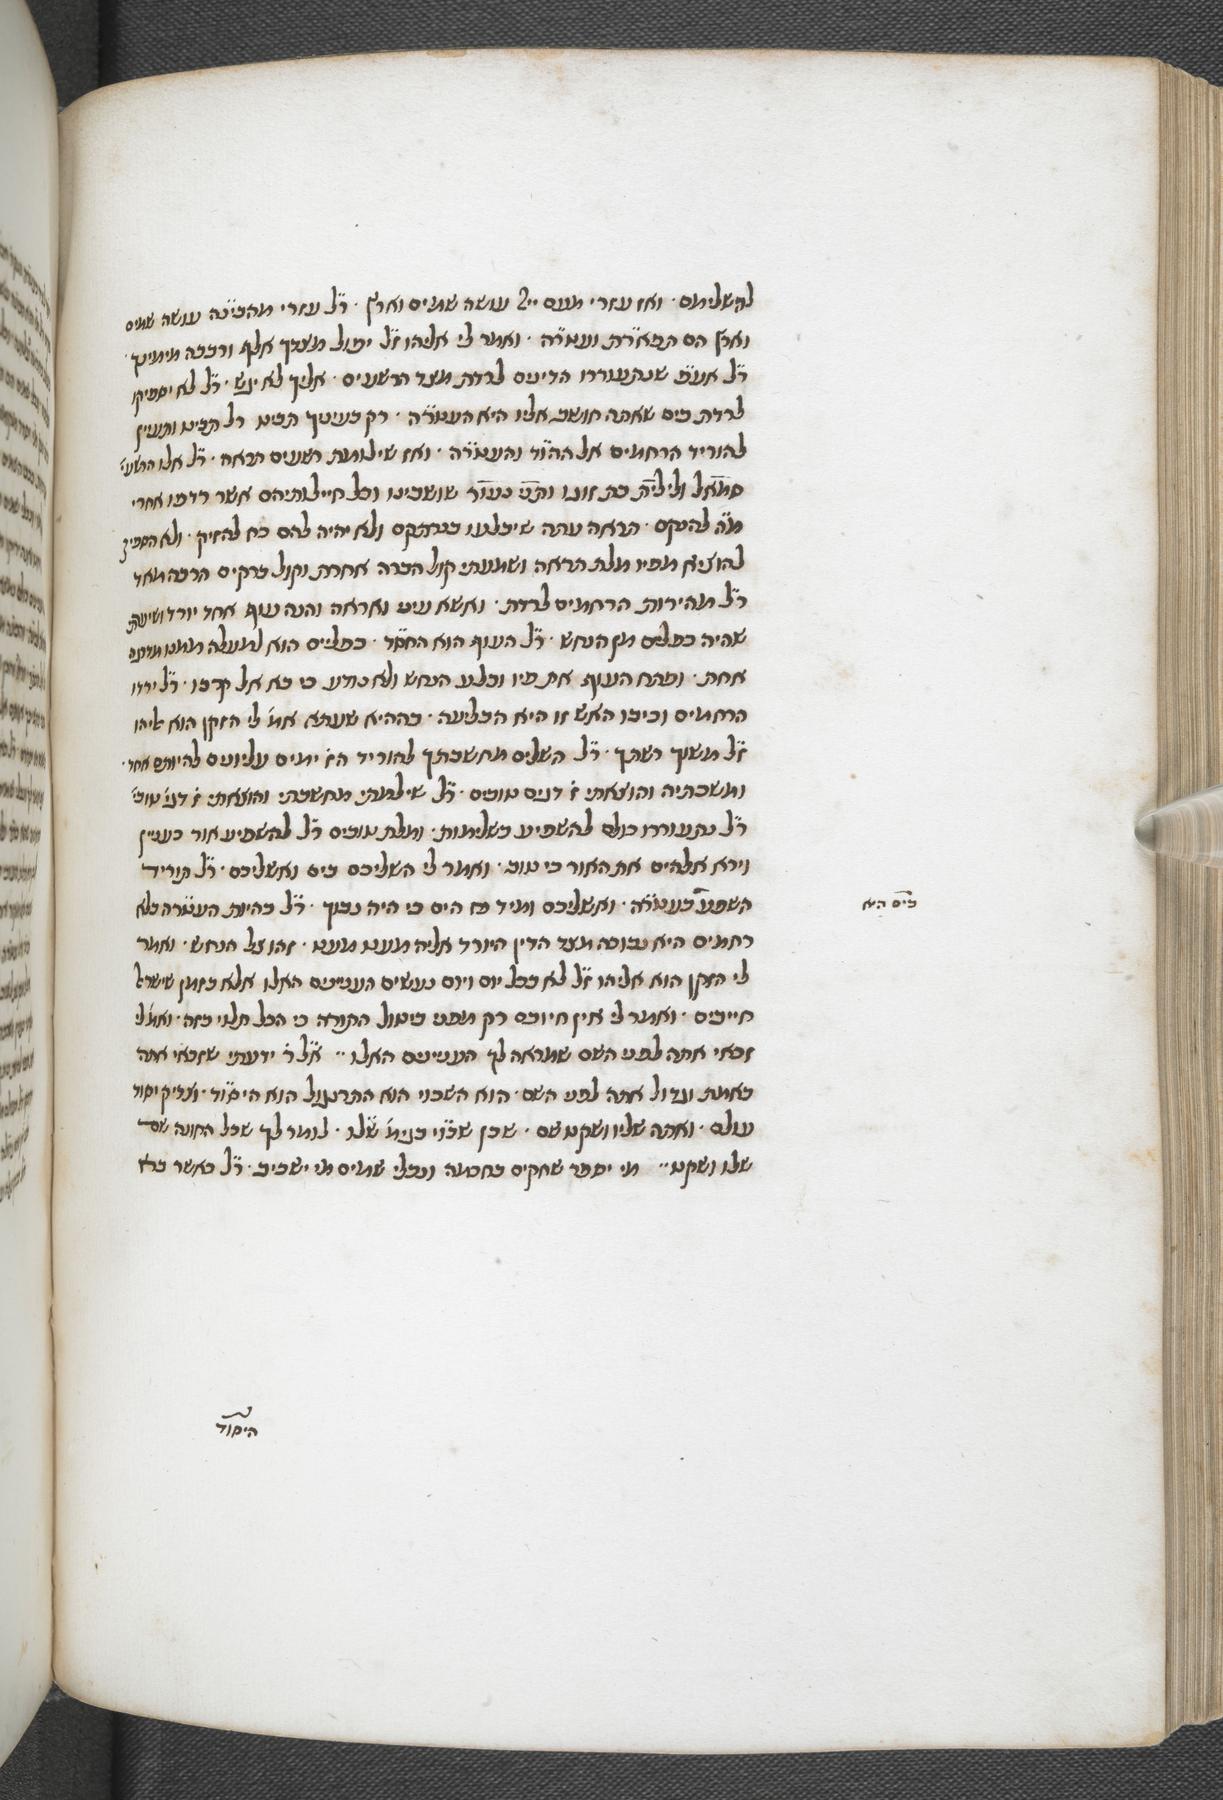 להשלימם · ואז עזרי מעם ייי עושה שמים וארץ · ר״ל עזרי מהבי״נה עושה שמים
וארץ הם תפא״רת ועט״רה · ואמר לי אליהו ז״ל יפול מצדך אלף ורבבה מימינך ·
ר״ל אע״פ שנתעוררו הדינים לרדת מצד הרשעים · אליך לא יגש · ר״ל לא יספיקו
לרדת בים שאתה חושב אליו היא העט״רה · רק בעיניך תביט ר״ל תביט ותעיין
להוריד הרחמים אל ההו״ד והעט״רה · ואז שילומת רשעים תראה · ר״ל אלו הרשעי׳
סמאל ולילית בת זוגו ושושבינו וכל חיילותיהם אשר רדפו אחרי
להנקם · תראה עתה שיבלעו ולא יהיה להם כח להזיק · ולא הספיק
להוציא מפיו מלת תראה ושמעתי קול הברה אחרת וקול ברקים הרבה מאד
ר״ל מהירות הרחמים לרדת · ואשא עיני ואראה והנה עוף אחד יורד
שהיה כפלים מן הנחש · ר״ל העוף הוא החס״ד · כפלים הוא למעלה ממנו
אחת · ופתח העוף את פיו ובלע הנחש ולא נודע כי בא אל קרבו · ר״ל ירדו
הרחמים וכיבו האש זו היא הבליעה · בההיא שעתא אמ׳ לי הזקן הוא אליהו
ז״ל משוך רשתך · ר״ל השלים מחשבתך להוריד הז׳ ימים עליונים להיותם אחד ·
ומשכתיה והוצאתי ז׳ דגים טובים · ר״ל שילמתי מחשבתי והוצאתי ז׳ דגי׳ טובי׳
ר״ל נתעוררו כולם להשפיע בשלימות · ומלת טובים ר״ל להשפיע אור כעניין
וירא אלהים את האור כי טוב · ואמר לי השליכם בים ואשליכם · ר״ל תוריד
השפע בעט״רה · ואשליכם ומיד פג הים כי היה נבוך · ר״ל בהיות העט״רה בלא
רחמים היא נבוכה מצד הדין היורד אליה מעט מעט · זהו צל הנחש · ואמר
לי הזקן הוא אליהו ז״ל לא בכל יום ויום נעשים העניינים האלו אלא בזמן שישראל
חייבים · ואמר לי אין חיובם רק מפני ביטול התורה כי הכל תלוי בזה · ואמ׳ לי
זכאי אתה לפני השם שמראה לך העניינים האלו ·· א״ל ר׳ ידעתי שזכאי אתה
באמת וגדול אתה לפני השם · הוא השכוי הוא התרנגול הוא היסו״ד · וצדיק יסוד
עולם · ואתה שליו ושקט שם · שכן שכ״וי בגימ׳ של״ו · לומר לך שכל החונה שם
שלו ושקט ·· מי יספר שחקים בחכמה ונבלי שמים מי ישכיב · ר״ל כאשר בא
בים היא
היסוד